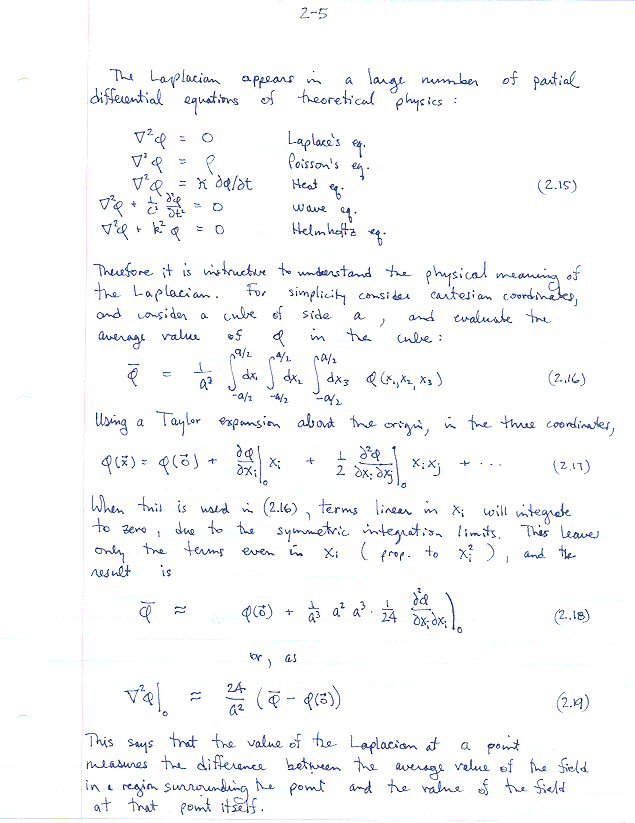 2-5
The Laplacian appears in a large number of partial
differential equations of theoretical physics :
∇²φ = 0 Laplace's eq.
∇²φ = ρ Poisson's eq.
∇²φ = κ ∂φ/∂t Heat eq. (2.15)
∇²φ + 1/c² ∂²φ/∂t² = 0 wave eq.
∇²φ + k²φ = 0 Helmholtz eq.
Therefore it is instructive to understand the physical meaning of
the Laplacian. For simplicity consider cartesian coordinates,
and consider a cube of side a , and evaluate the
average value of φ in the cube :
φ̄ = 1/a³ ∫_{-a/2}^{a/2} dx₁ ∫_{-a/2}^{a/2} dx₂ ∫_{-a/2}^{a/2} dx₃ φ(x₁,x₂,x₃) (2.16)
Using a Taylor expansion about the origin, in the three coordinates,
φ(x⃗) = φ(0⃗) + ∂φ/∂xᵢ|₀ xᵢ + 1/2 ∂²φ/∂xᵢ∂xⱼ|₀ xᵢxⱼ + ··· (2.17)
When this is used in (2.16), terms linear in xᵢ will integrate
to zero, due to the symmetric integration limits. This leaves
only the terms even in xᵢ ( prop. to xᵢ² ), and the
result is
φ̄ ≈ φ(0⃗) + 1/a³ a² a³ · 1/24 ∂²φ/∂xᵢ∂xᵢ|₀ (2.18)
or, as
∇²φ|₀ ≈ 24/a² (φ̄ - φ(0⃗)) (2.19)
This says that the value of the Laplacian at a point
measures the difference between the average value of the field
in a region surrounding the point and the value of the field
at that point itself.